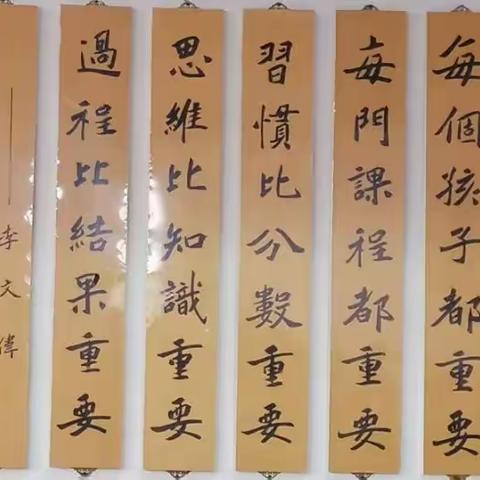 每個孩子都重要
每門課程都重要
習慣比分數重要
思維比知識重要
過程比結果重要
李文偉